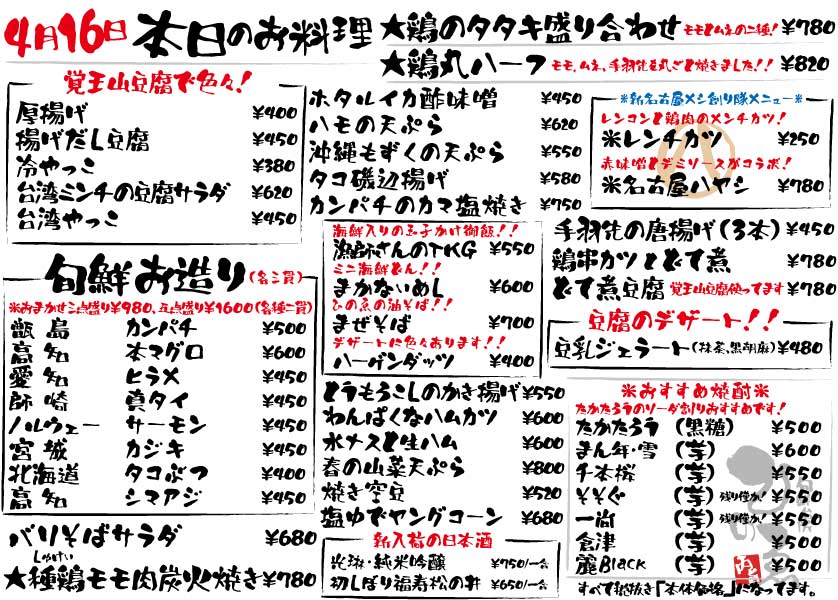 4月16日 本日のお料理
★鶏のタタキ盛り合わせ モモとムネの二種! ¥780
★鶏丸ハーフ モモ、ムネ、手羽先を丸ごと焼きました!! ¥820
覚王山豆腐で色々!
厚揚げ ¥400
揚げだし豆腐 ¥450
冷やっこ ¥380
台湾ミンチの豆腐サラダ ¥620
台湾やっこ ¥450
旬鮮お造り (各二貫)
※おまかせ三点盛り¥980、五点盛り¥1600(各種二貫)
甑島 カンパチ ¥500
高知 本マグロ ¥600
愛知 ヒラメ ¥450
師崎 真タイ ¥450
ノルウェー サーモン ¥450
宮城 カジキ ¥450
北海道 タコぶつ ¥400
高知 シマアジ ¥450
バリそばサラダ ¥680
しゅけい
★種鶏モモ肉炭火焼き ¥780
ホタルイカ酢味噌 ¥450
ハモの天ぷら ¥620
沖縄もずくの天ぷら ¥550
タコ磯辺揚げ ¥580
カンパチのカマ塩焼き ¥750
海鮮入りの玉子かけ御飯!!
漁師さんのTKG ¥550
ミニ海鮮どん!!
まかないめし ¥600
ひの食の油そば!!
まぜそば ¥700
デザートに色々あります!!
ハーゲンダッツ ¥400
とうもろこしのかき揚げ ¥550
わんぱくなハムカツ ¥600
水ナスと生ハム ¥600
春の山菜天ぷら ¥800
焼き空豆 ¥520
塩ゆでヤングコーン ¥680
新入荷の日本酒
光琳・純米吟醸 ¥750/一合
初しぼり福寿松の井 ¥650/一合
※新名古屋メシ創り隊メニュー※
レンコンと鶏肉のメンチカツ!
※レンチカツ ¥250
赤味噌とデミソースがコラボ!
※名古屋ハヤシ ¥780
手羽先の唐揚げ(3本) ¥450
鶏串カツとどて煮 ¥780
どて煮豆腐 覚王山豆腐使ってます ¥780
豆腐のデザート!!
豆乳ジェラート(抹茶,黒胡麻) ¥480
※おすすめ焼酎※
たかたろうのソーダ割りおすすめです!
たかたろう (黒糖) ¥500
まん年・雪 (芋) ¥600
千本桜 (芋) ¥550
そそぐ (芋) 残り僅か! ¥550
一尚 (芋) 残り僅か! ¥550
倉津 (芋) ¥500
麗Black (芋) ¥500
すべて税抜き「本体価格」になってます。